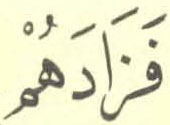 فَزَادَهُمْ